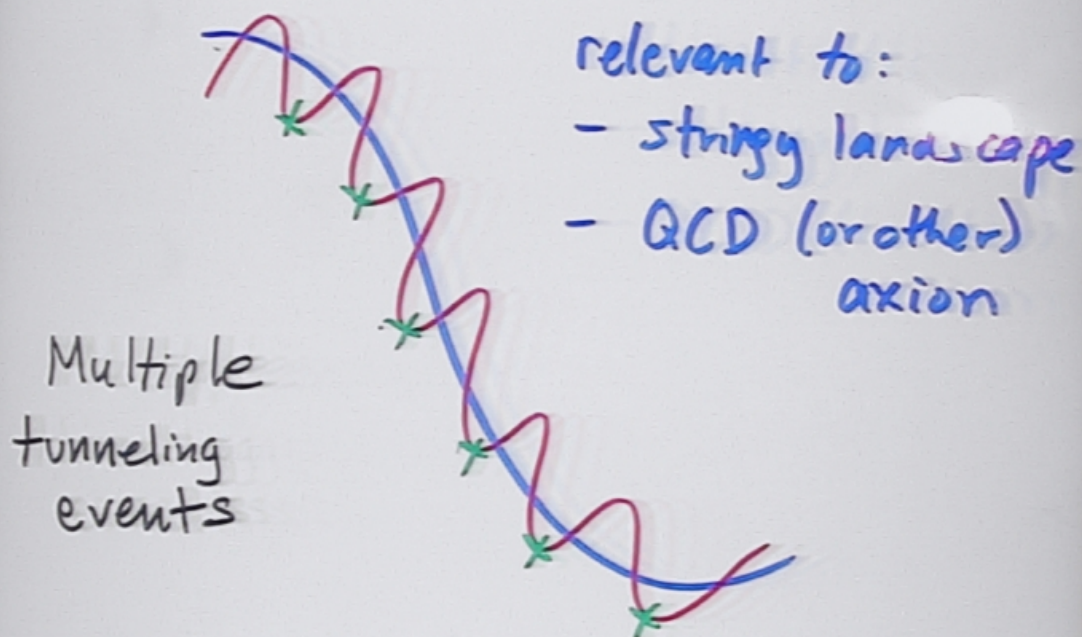 relevant to:
- stringy landscape
- QCD (or other)
axion
Multiple
tunneling
events